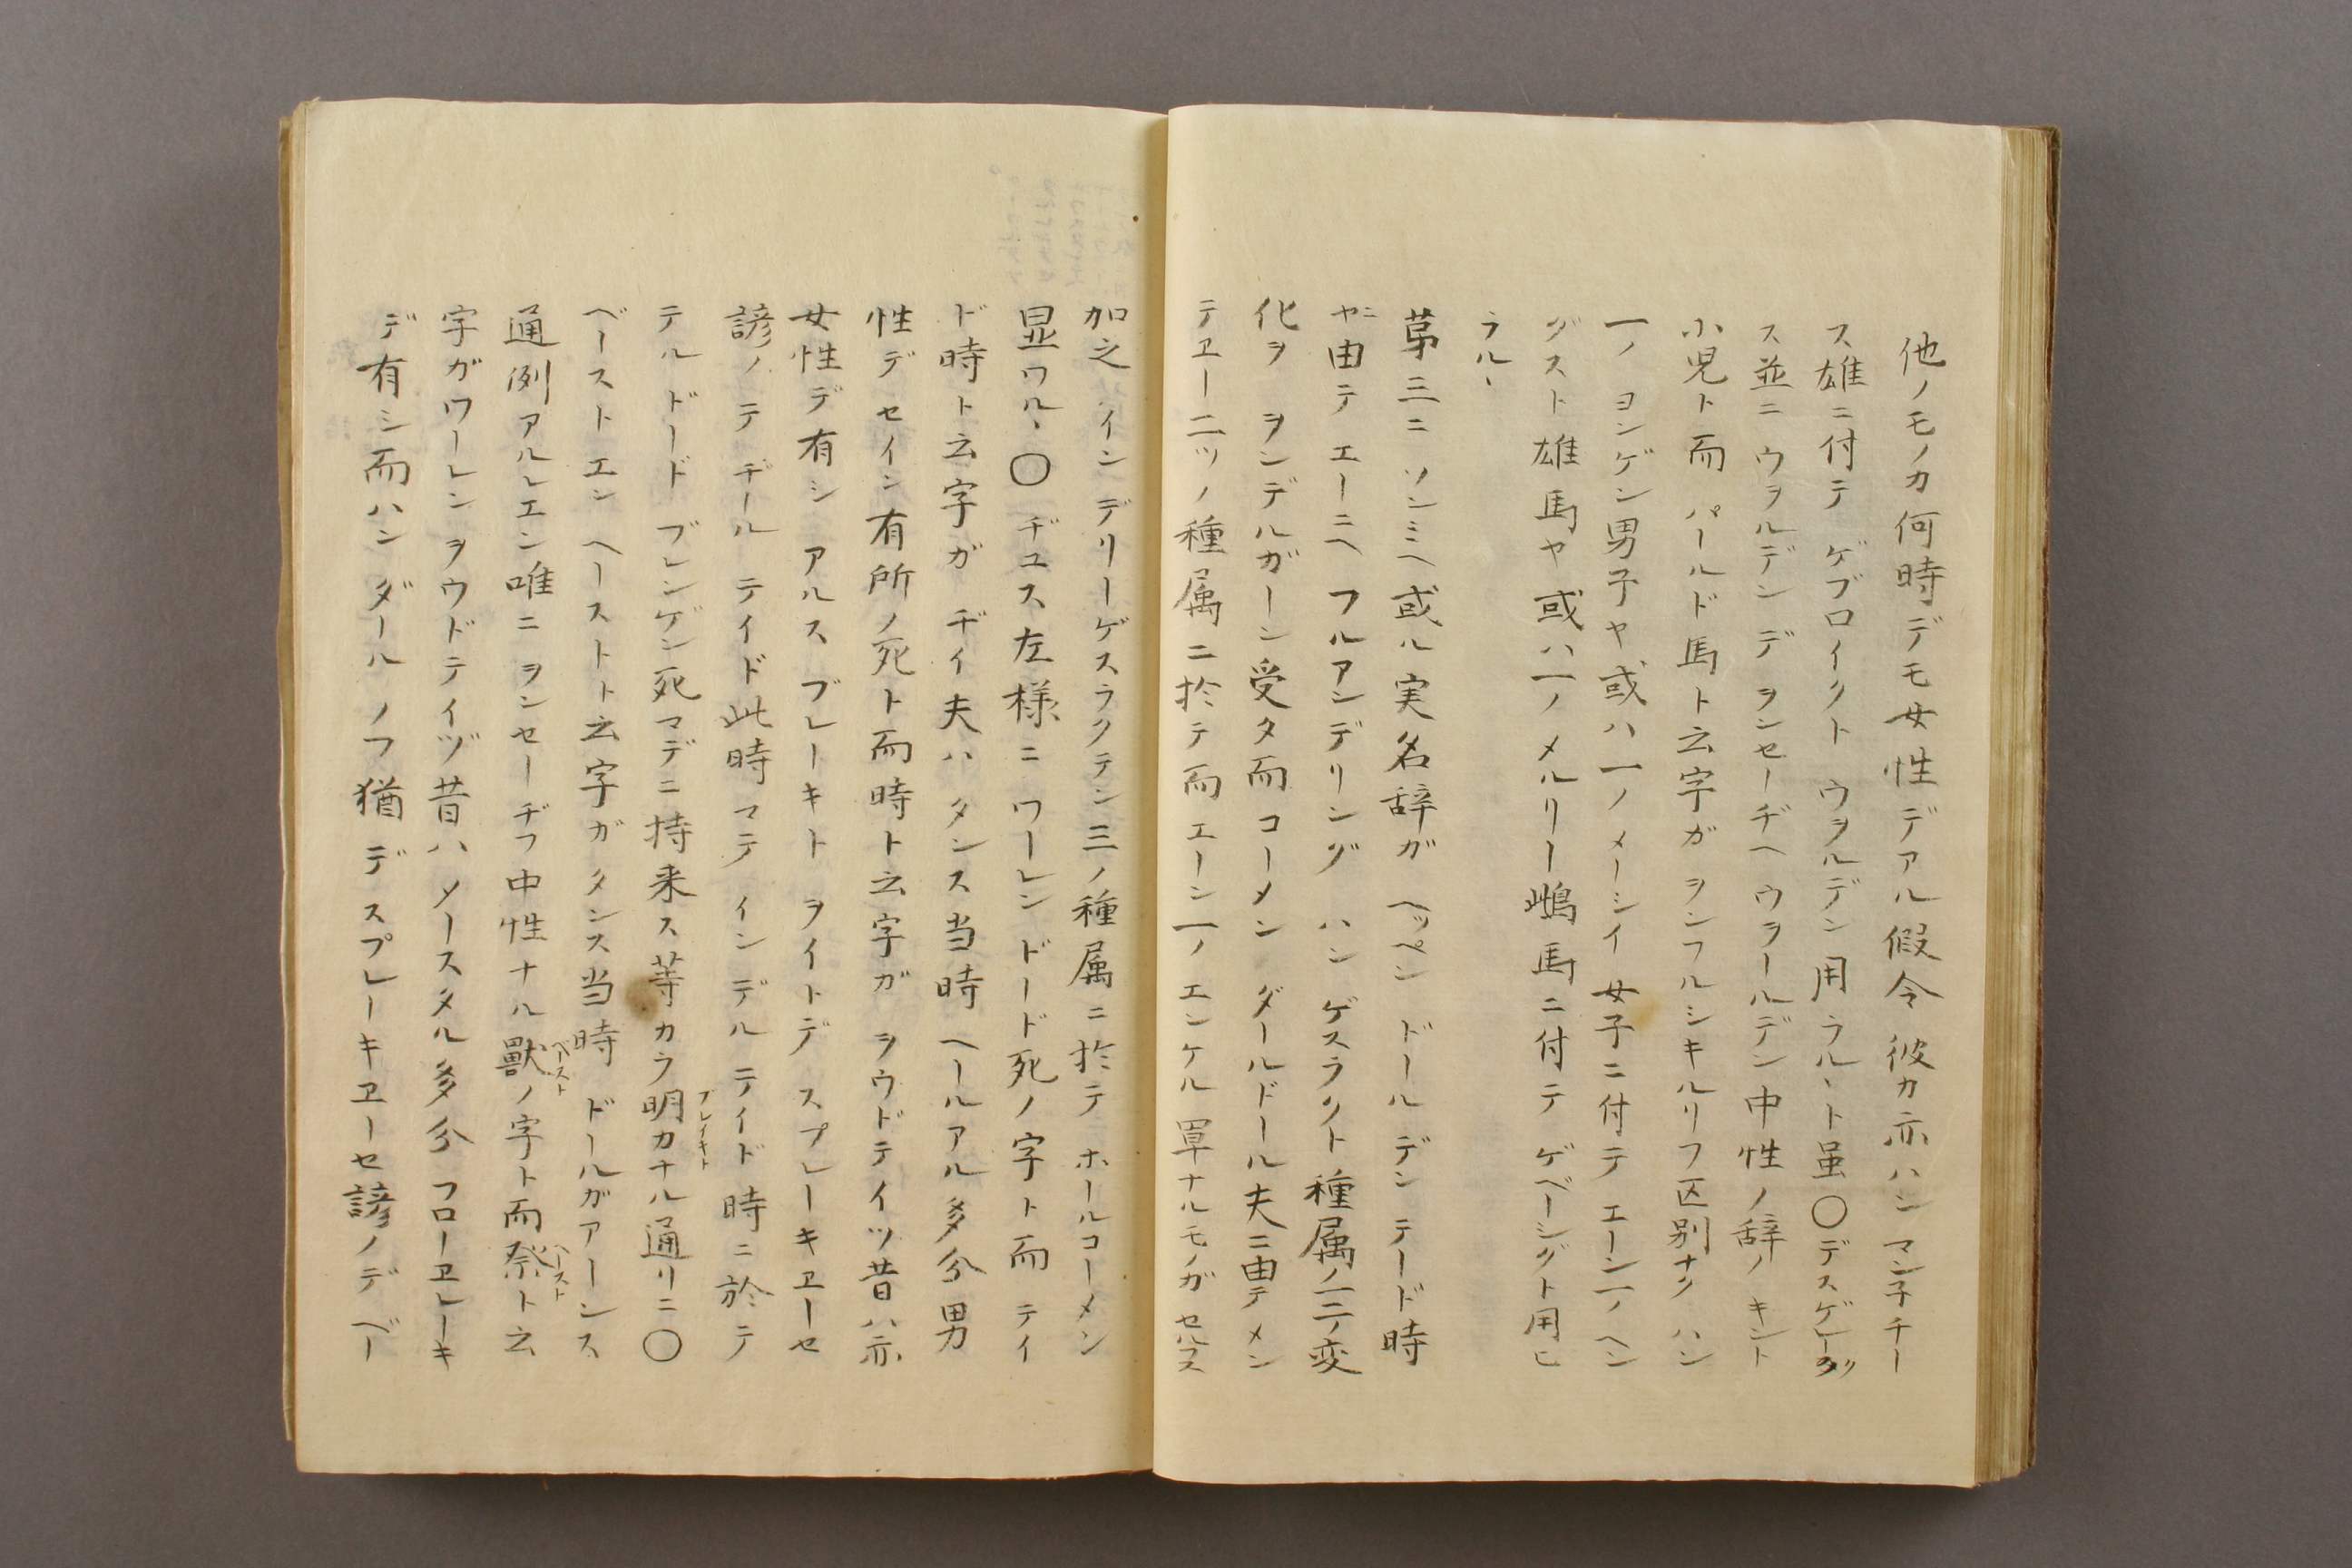 他ノモノカ何時デモ女性デアル假令彼カ亦ハン マン子チー
ス雄ニ付テ ゲブロイクト ウヲルデン用ラル、ト虽〇デスゲレーク
ス並ニ ウヲルデン デ ヲンセーヂヘ ウヲールデン中性ノ辞ノ キント
小児ト而 パールド馬ト云字ガ ヲンフルシキルリフ区別ナク ハン
一ノ ヨンゲン男子ヤ或ハ一ノ メーシイ 女子ニ付テ エーン一ノ ヘン
グスト雄馬ヤ或ハ一ノ メルリー鴫馬ニ付テ ゲベーシグト用ヒ
ラル、
苐三ニ ソンミヘ或ル実名辞ガ ヘッペン ドール デン テード時
ヤニ由テ エーニヘ フルアンデリング ハン ゲスラクト種属ノ一二ノ変
化ヲ ヲンデルガーン受タ而 コーメン ダールドール夫ニ由テ メン
テヱー二ツノ種属ニ扵テ而 エーン一ノ エンケル單ナルモノガ セルフス
加之 インデリーゲスラクテン三ノ種属ニ扵テ ホールコーメン
显ワル、〇 ヂユス左様ニ ワーレン ドード死ノ字ト而 テイ
ド時ト云字ガ ヂイ夫ハ タンス当時 ヘールアル多分男
性デ セイン有所ノ死ト而時ト云字ガ ヲウドテイツ昔ハ亦
女性デ有シ アルス ブレーキト ヲイトデ スプレーキヱーセ
諺ノテ ヂール テイド此時マテ インデル テイド時ニ於テ
テルドード ブレンゲン死マデニ持来ス等カラ明カナル通リニ〇
ブレイキト
ベースト エン ヘーストト云字ガ タンス当時 ドールガアーンス
通例アルレエン唯ニ ヲンセーヂフ中性ナル獸ノ字ト而祭ト云
ベースト
ヘースト
字ガワーレンヲウドテイヅ昔ハ メースタル多分 フローヱレーキ
デ有シ而ハン ダール ノフ猶 デ スプレーキヱーセ諺ノデ ベー